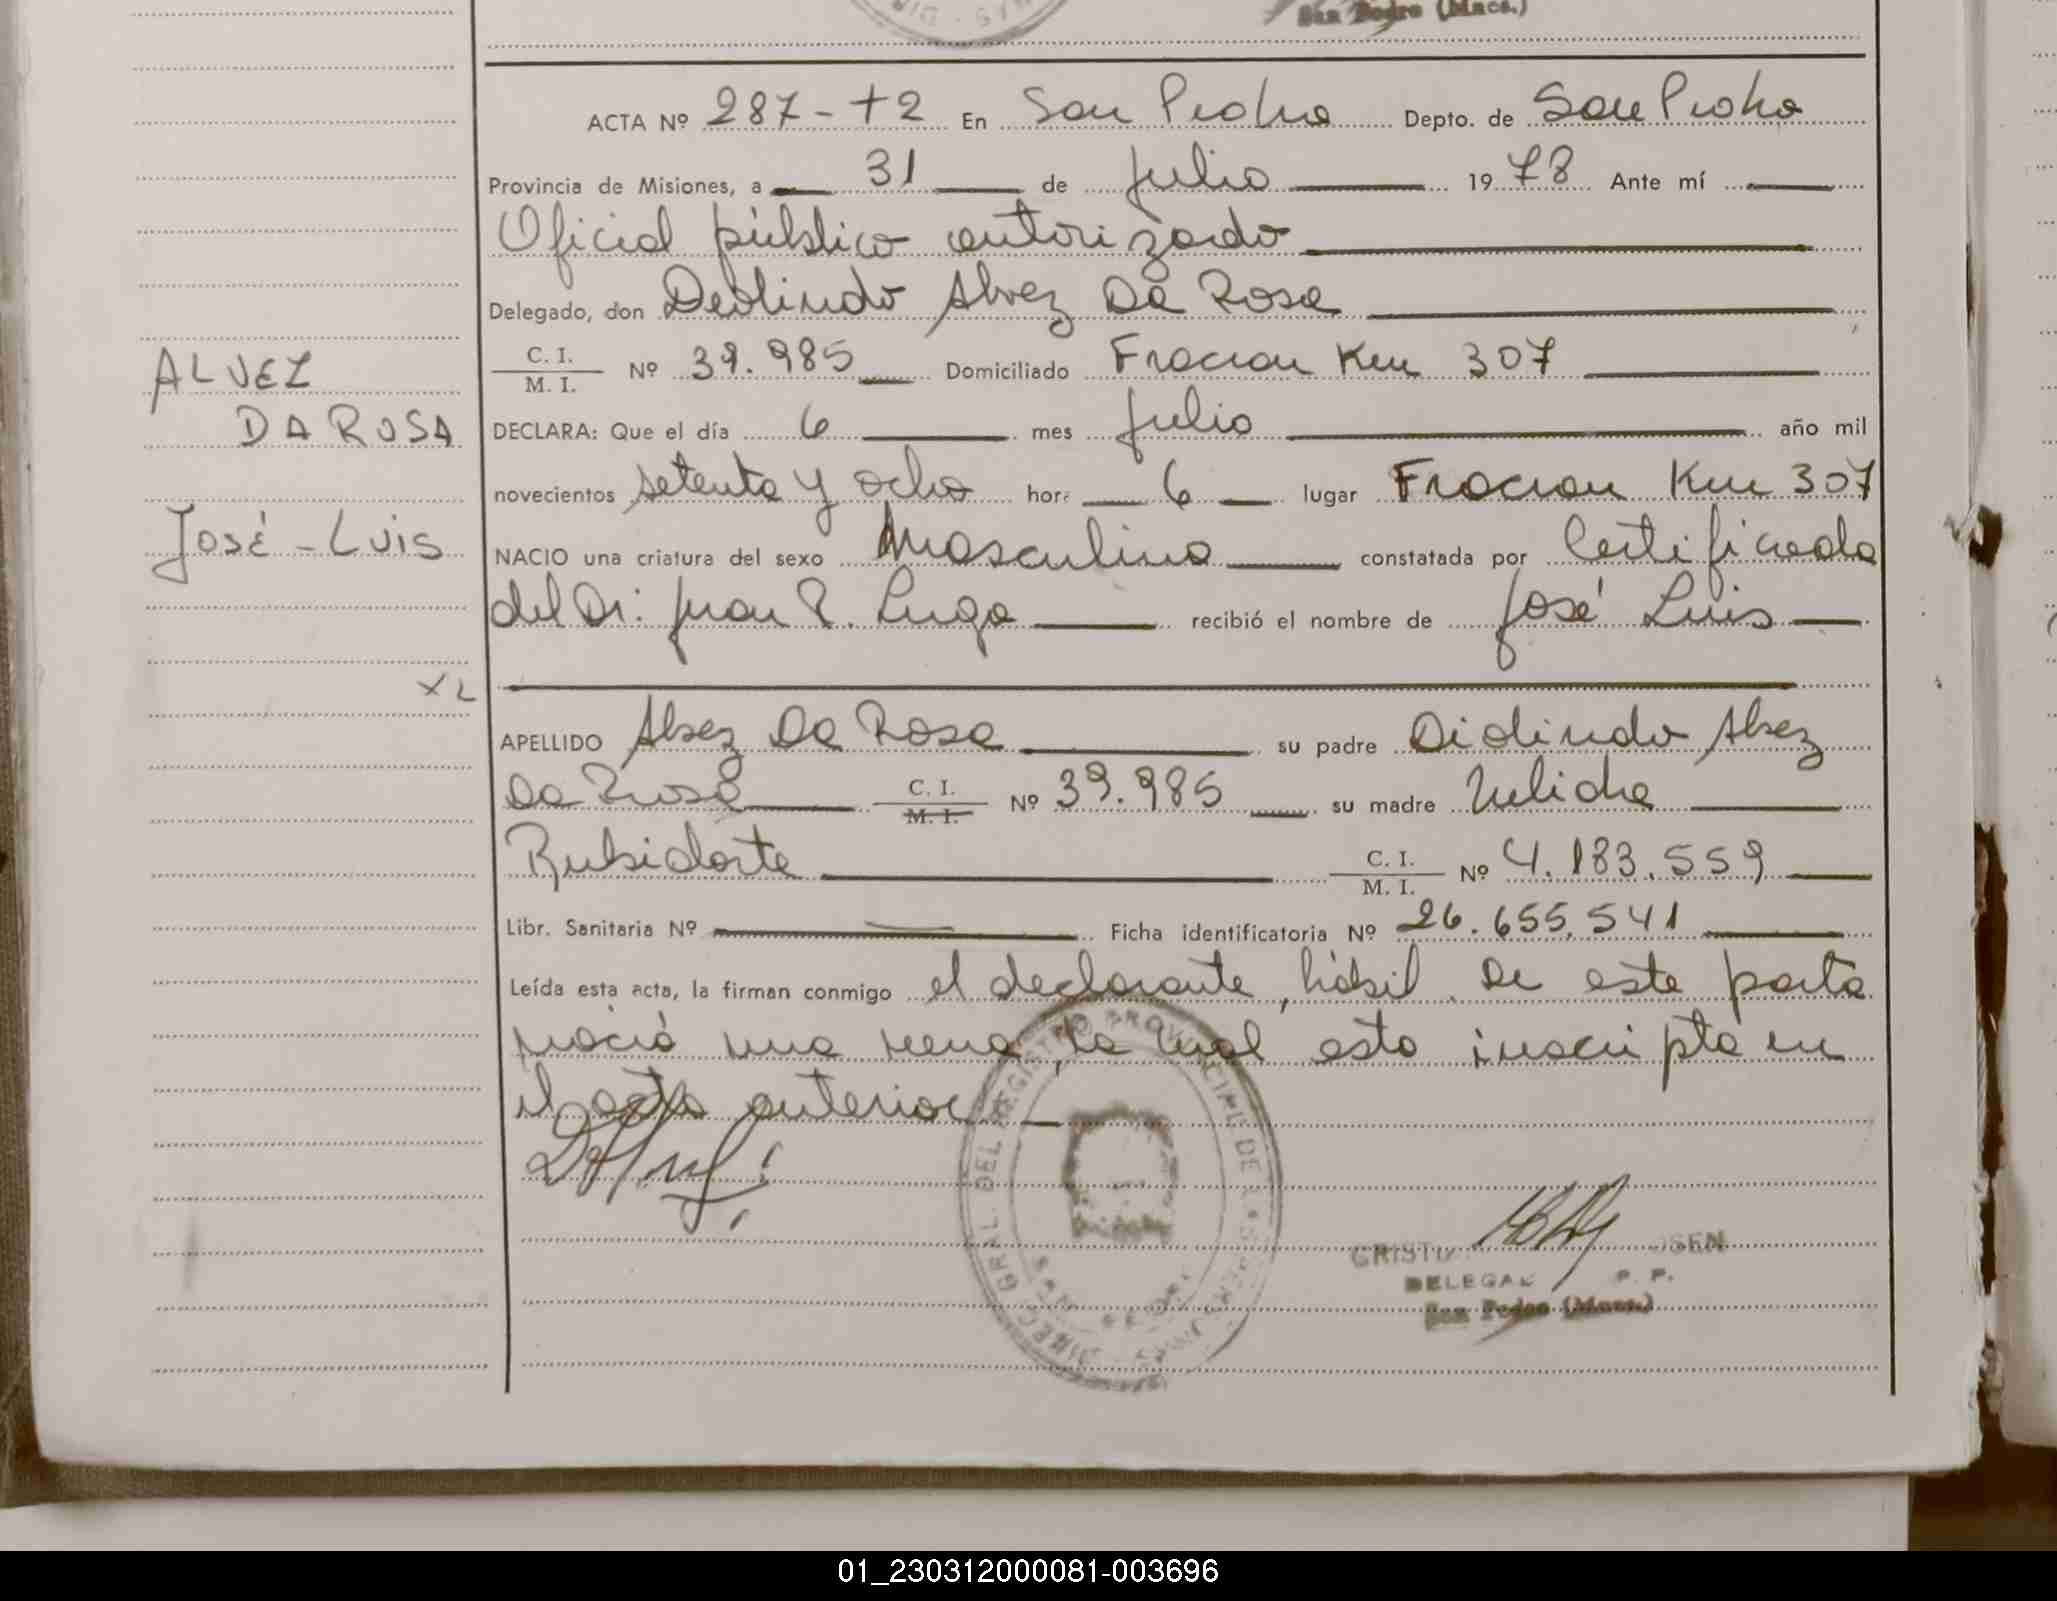 San Pedro (Mnes.)
ACTA Nº 287-T2 En San Pedro Depto. de San Pedro
Provincia de Misiones, a 31 de Julio 1978 Ante mí
Oficial público autorizado
Delegado, don Deolindo Alvez Da Rosa
C. I.
M. I. Nº 39.985 Domiciliado Fracran Km 307
ALVEZ
DA ROSA
DECLARA: Que el día 6 mes Julio año mil
novecientos setenta y ocho hora 6 lugar Fracran Km 307
José - Luis
NACIO una criatura del sexo Masculino constatada por Certificado
del Dr. Juan P. Lugo recibió el nombre de José Luis
XL
APELLIDO Alvez Da Rosa su padre Diolindo Alvez
Da Rosa C. I.
M. I. Nº 39.985 su madre
C. I.
M. I. Nº 4.183.559
Libr. Sanitaria Nº Ficha identificatoria Nº 26.655.541
Leída esta acta, la firman conmigo el declarante, hábil. De este parto
nació una nena, la cual esta inscripta en
el acta anterior
DIREC. GRAL. DEL REGISTRO PROVINCIAL DE LAS PERSONAS
SAN PEDRO
DELEGAD R. P.
San Pedro (Mnes.)
01_230312000081-003696